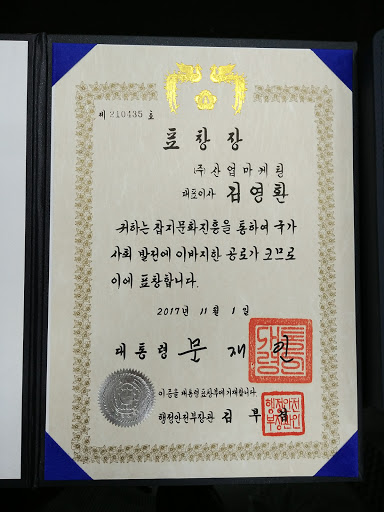 제 210435 호
표창장
(주)산업마케팅
대표이사 김영환
귀하는 잡지문화진흥을 통하여 국가
사회 발전에 이바지한 공로가 크므로
이에 표창합니다.
2017년 11월 1일
대통령 문재인
이 증을 대통령표창부에 기재합니다.
행정안전부장관 김부겸